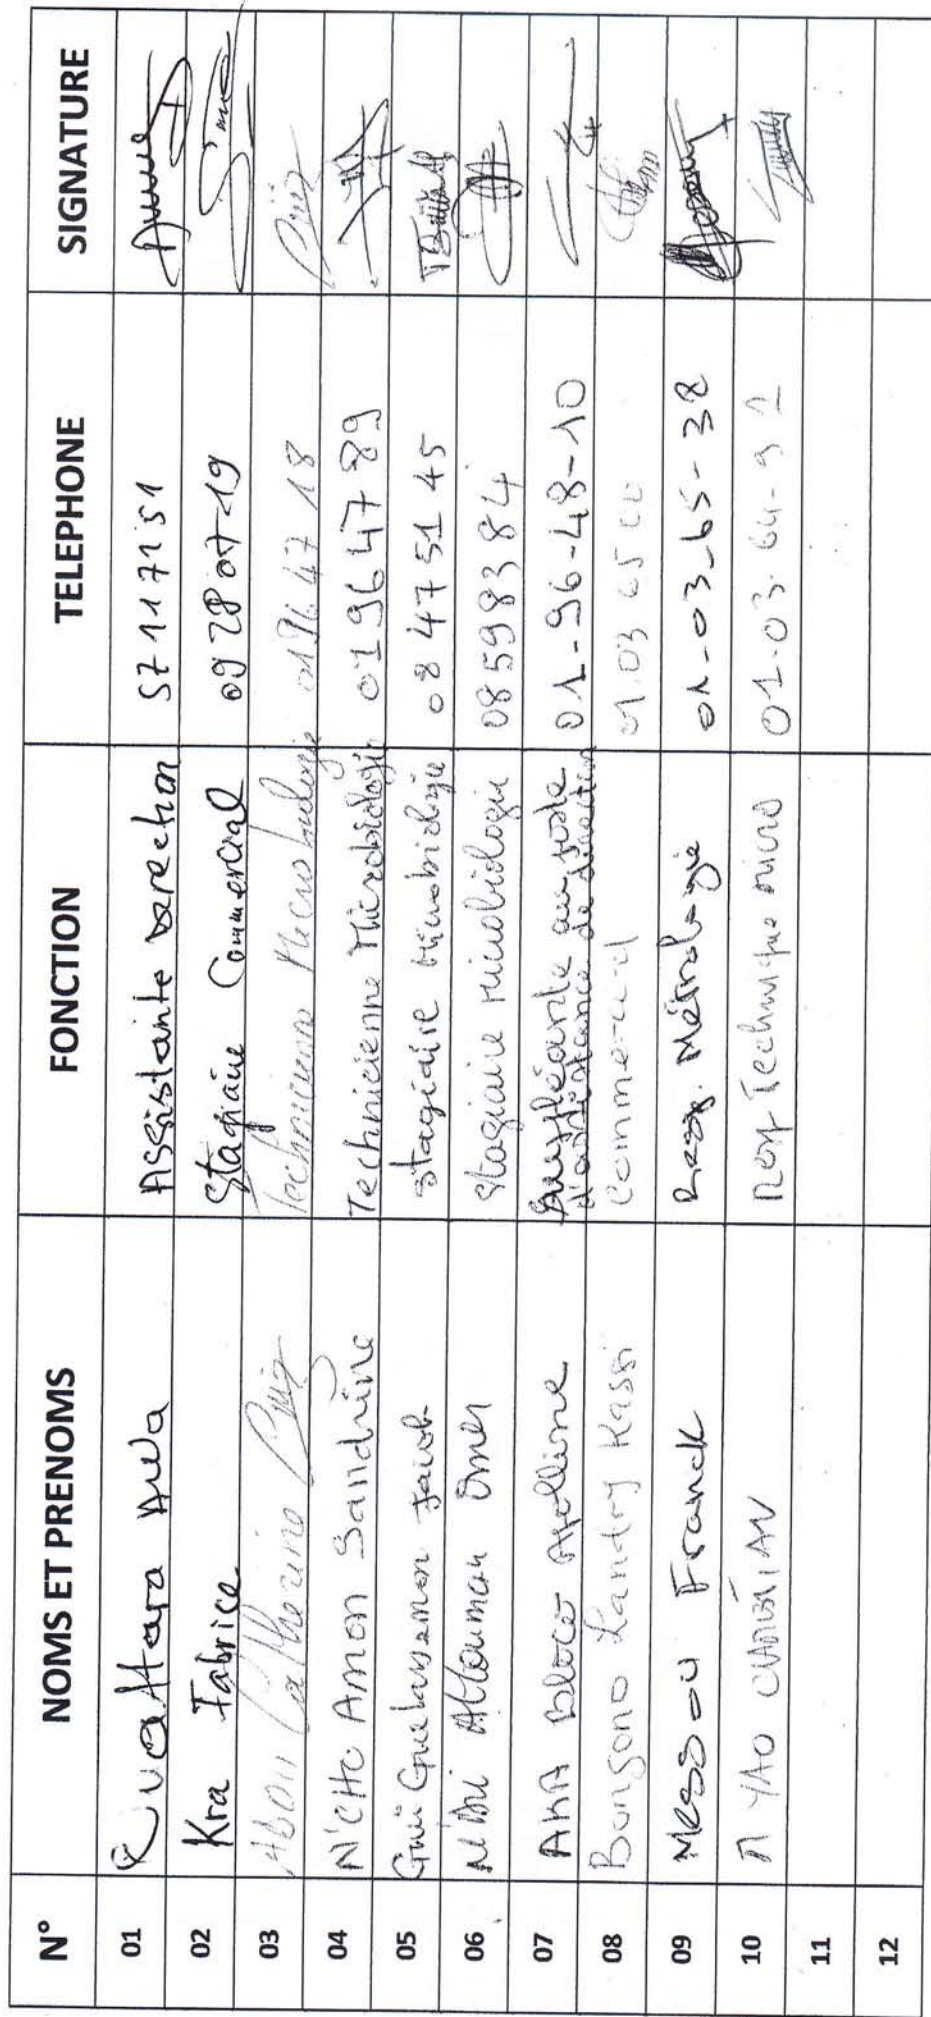 N° NOMS ET PRENOMS FONCTION TELEPHONE SIGNATURE
01 Ouattara Awa Assistante Direction 57 11 71 51
02 Kra Fabrice Stagiaire Commercial 09 28 07-19
03 Abou Catherine Technicienne Microbiologie 01 96 47 18
04 N'CHO AMON Sandrine Technicienne Microbiologie 01 96 47 89
05 Jacob stagiaire Microbiologie 08 47 51 45
06 Omer Stagiaire Microbiologie 08 59 83 84
07 AKA Apolline Suppléante au poste 01-96-48-10
d'assistance de direction
08 Bongono Landry Kassi Commercial 01.03 65
09 Messou Franck Resp. Métrologie 01-03-65-38
10 YAO Resp Technique micro 01-03-64-92
11
12